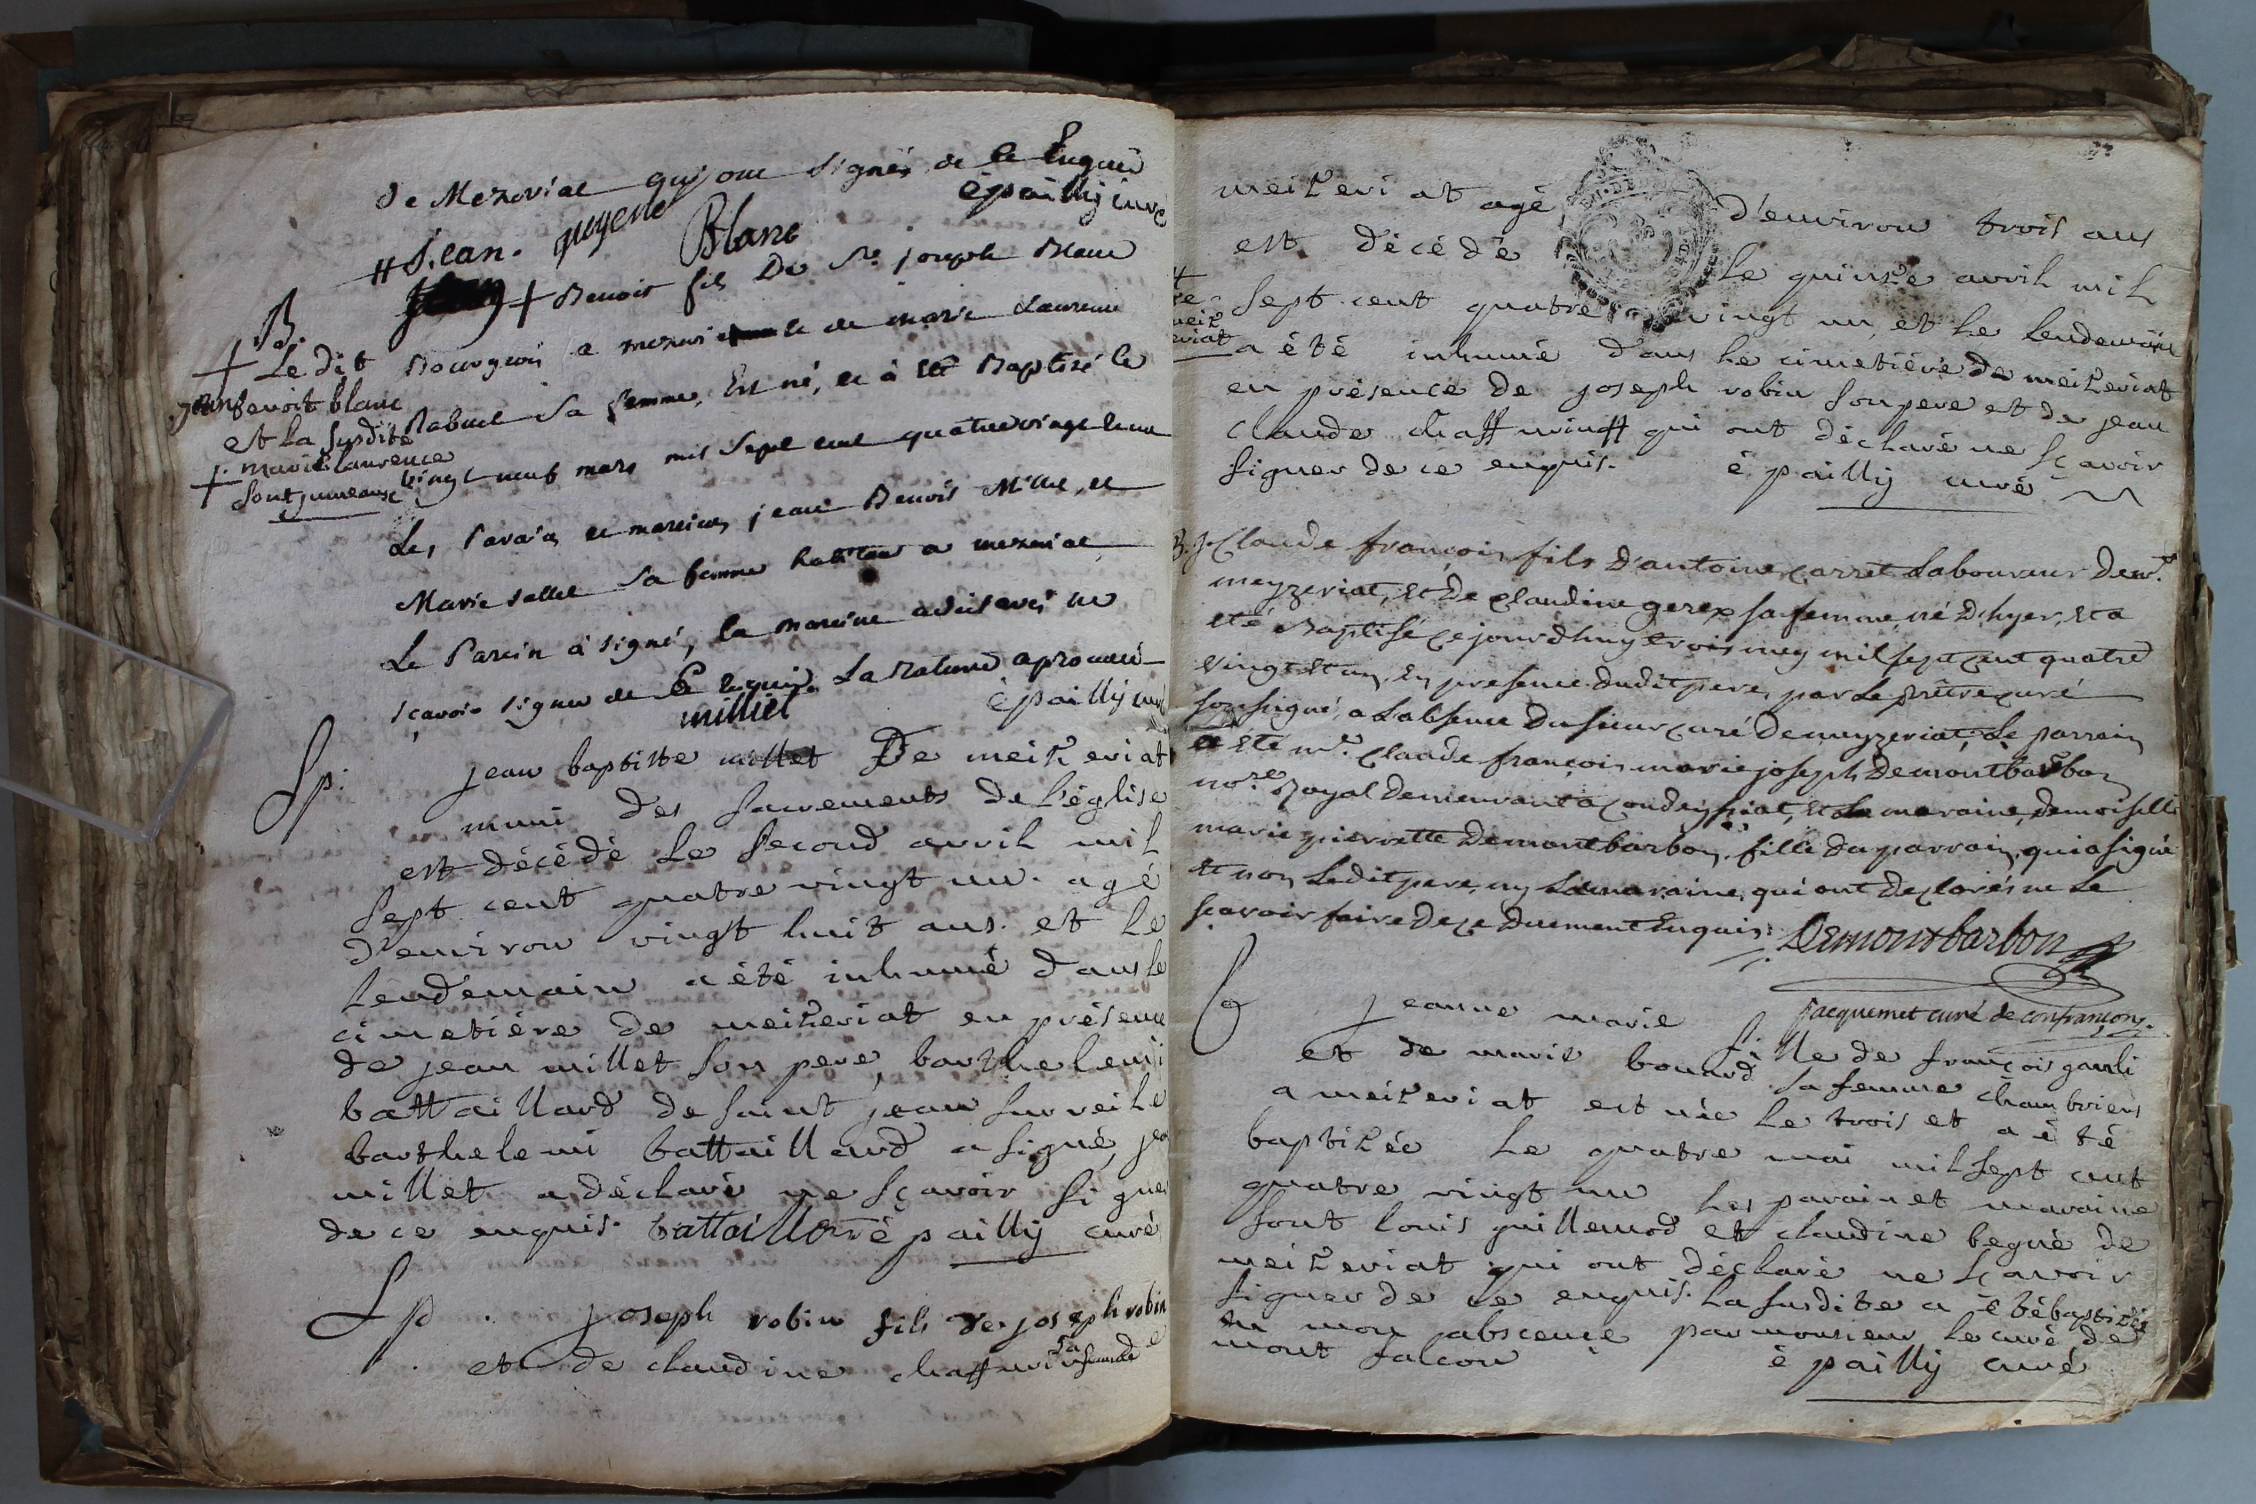 de Mezeriat qui ont signés de ce Enquis
épailly curé
# Jean. guyenet
Blanc
B.
+ Benoit fils De Sr. joseph Blanc
Bourgeois a mezeriat et de marie Laurence
Rabuel sa femme, Est né, et à été Baptisé le
vingt neuf mars mil sept cent quatre vingt un
Les Parain et mareine, jean Benoit Millet, et
Marie sallet sa femme habitant a mezeriat
Le Parein à signé, la mareine a déclaré ne
sçavoir signer de ce Enquis. La rature aprouvée
milliet
épailly curé
+ Le dit
jean benoit blanc
et la susdite
+ marie laurence
sont jumeaux
Sp. jean baptiste millet De meizeriat
muni des sacrements de l'église
est décédé le second avril mil
sept cent quatre vingt un. agé
d'environ vingt huit ans. et le
lendemain a été inhumé dans le
cimetiére de meizeriat en présence
de jean millet son pere, barthelemi
battaillard de saint jean sur veile
barthelemi battaillard a signé, jean
millet a déclaré ne sçavoir signer
de ce enquis. battaillard épailly curé
Sp. joseph robin fils de joseph robin
et de claudine chaffurin sa femme de
meizeriat agé d'environ trois ans
est décédé le quinze avril mil
sept cent quatre vingt un, et le lendemain
a été inhumé dans le cimetiére de meizeriat
en présence de joseph robin son pere et de jean
claude chaffurin qui ont déclaré ne sçavoir
signer de ce enquis. épailly curé
B. Claude françois fils d'antoine carret Laboureur dem.t
meyzeriat, et De claudine gerex sa femme, né D'hyer, et a
eté Baptisé ce jourdhuy trois may mil sept cent quatre
vingt et un, En presence dudit pere, par Le prêtre curé
soussigné, a Labsence du sieur curé de meyzeriat, Le parrain
a été mr. claude françois marie joseph Demontbarbon
nore. Royal demeurant a condeyssiat, et La maraine, demoiselle
marie pierrette Demontbarbon, fille du parrain, qui a signé
et non Ledit pere, ny La maraine, qui ont declarés ne Le
sçavoir faire de ce duement Enquis.
Demontbarbon
jacquemet curé de confrançon
B jeanne marie fille de françois
et de marie bouard sa femme
a meizeriat est née le trois et a été
baptizée le quatre mai mil sept cent
quatre vingt un les parain et maraine
sont louis guillemod et claudine begué de
meizeriat qui ont déclaré ne sçavoir
signer de ce enquis. la susdite a été baptizée
en mon abscence par monsieur le curé de
mont falcon épailly curé